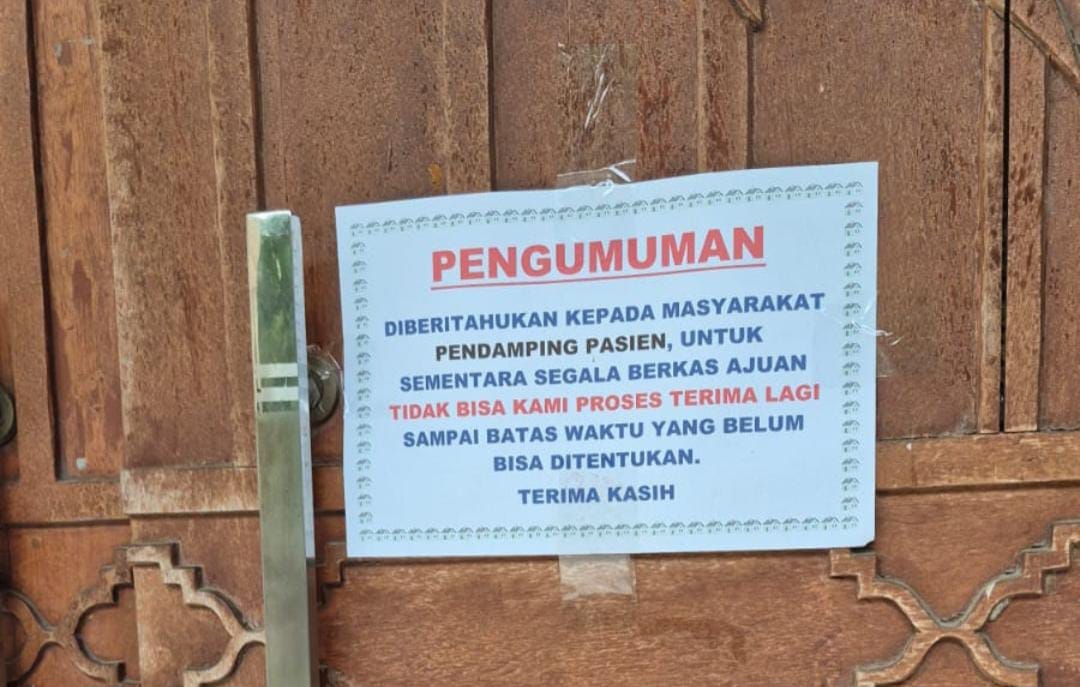 PENGUMUMAN
DIBERITAHUKAN KEPADA MASYARAKAT
PENDAMPING PASIEN, UNTUK
SEMENTARA SEGALA BERKAS AJUAN
TIDAK BISA KAMI PROSES TERIMA LAGI
SAMPAI BATAS WAKTU YANG BELUM
BISA DITENTUKAN.
TERIMA KASIH